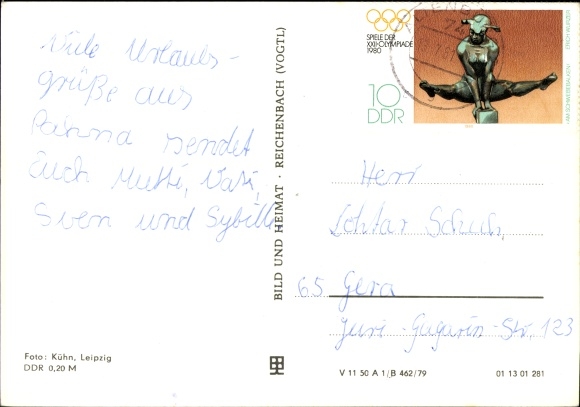 Viele Urlaubs-
grüße aus
Pahna sendet
Euch Mutti, Vati,
Sven und Sybille
Foto: Kühn, Leipzig
DDR 0,20 M
BILD UND HEIMAT · REICHENBACH (VOGTL)
SPIELE DER
XXII. OLYMPIADE
1980
10
DDR
ERICH WURZER
AM SCHWEBEBALKEN
Herr
Lothar Schuch,
65 Gera
Juri-Gagarin-Str. 123
V 11 50 A 1/B 462/79
01 13 01 281